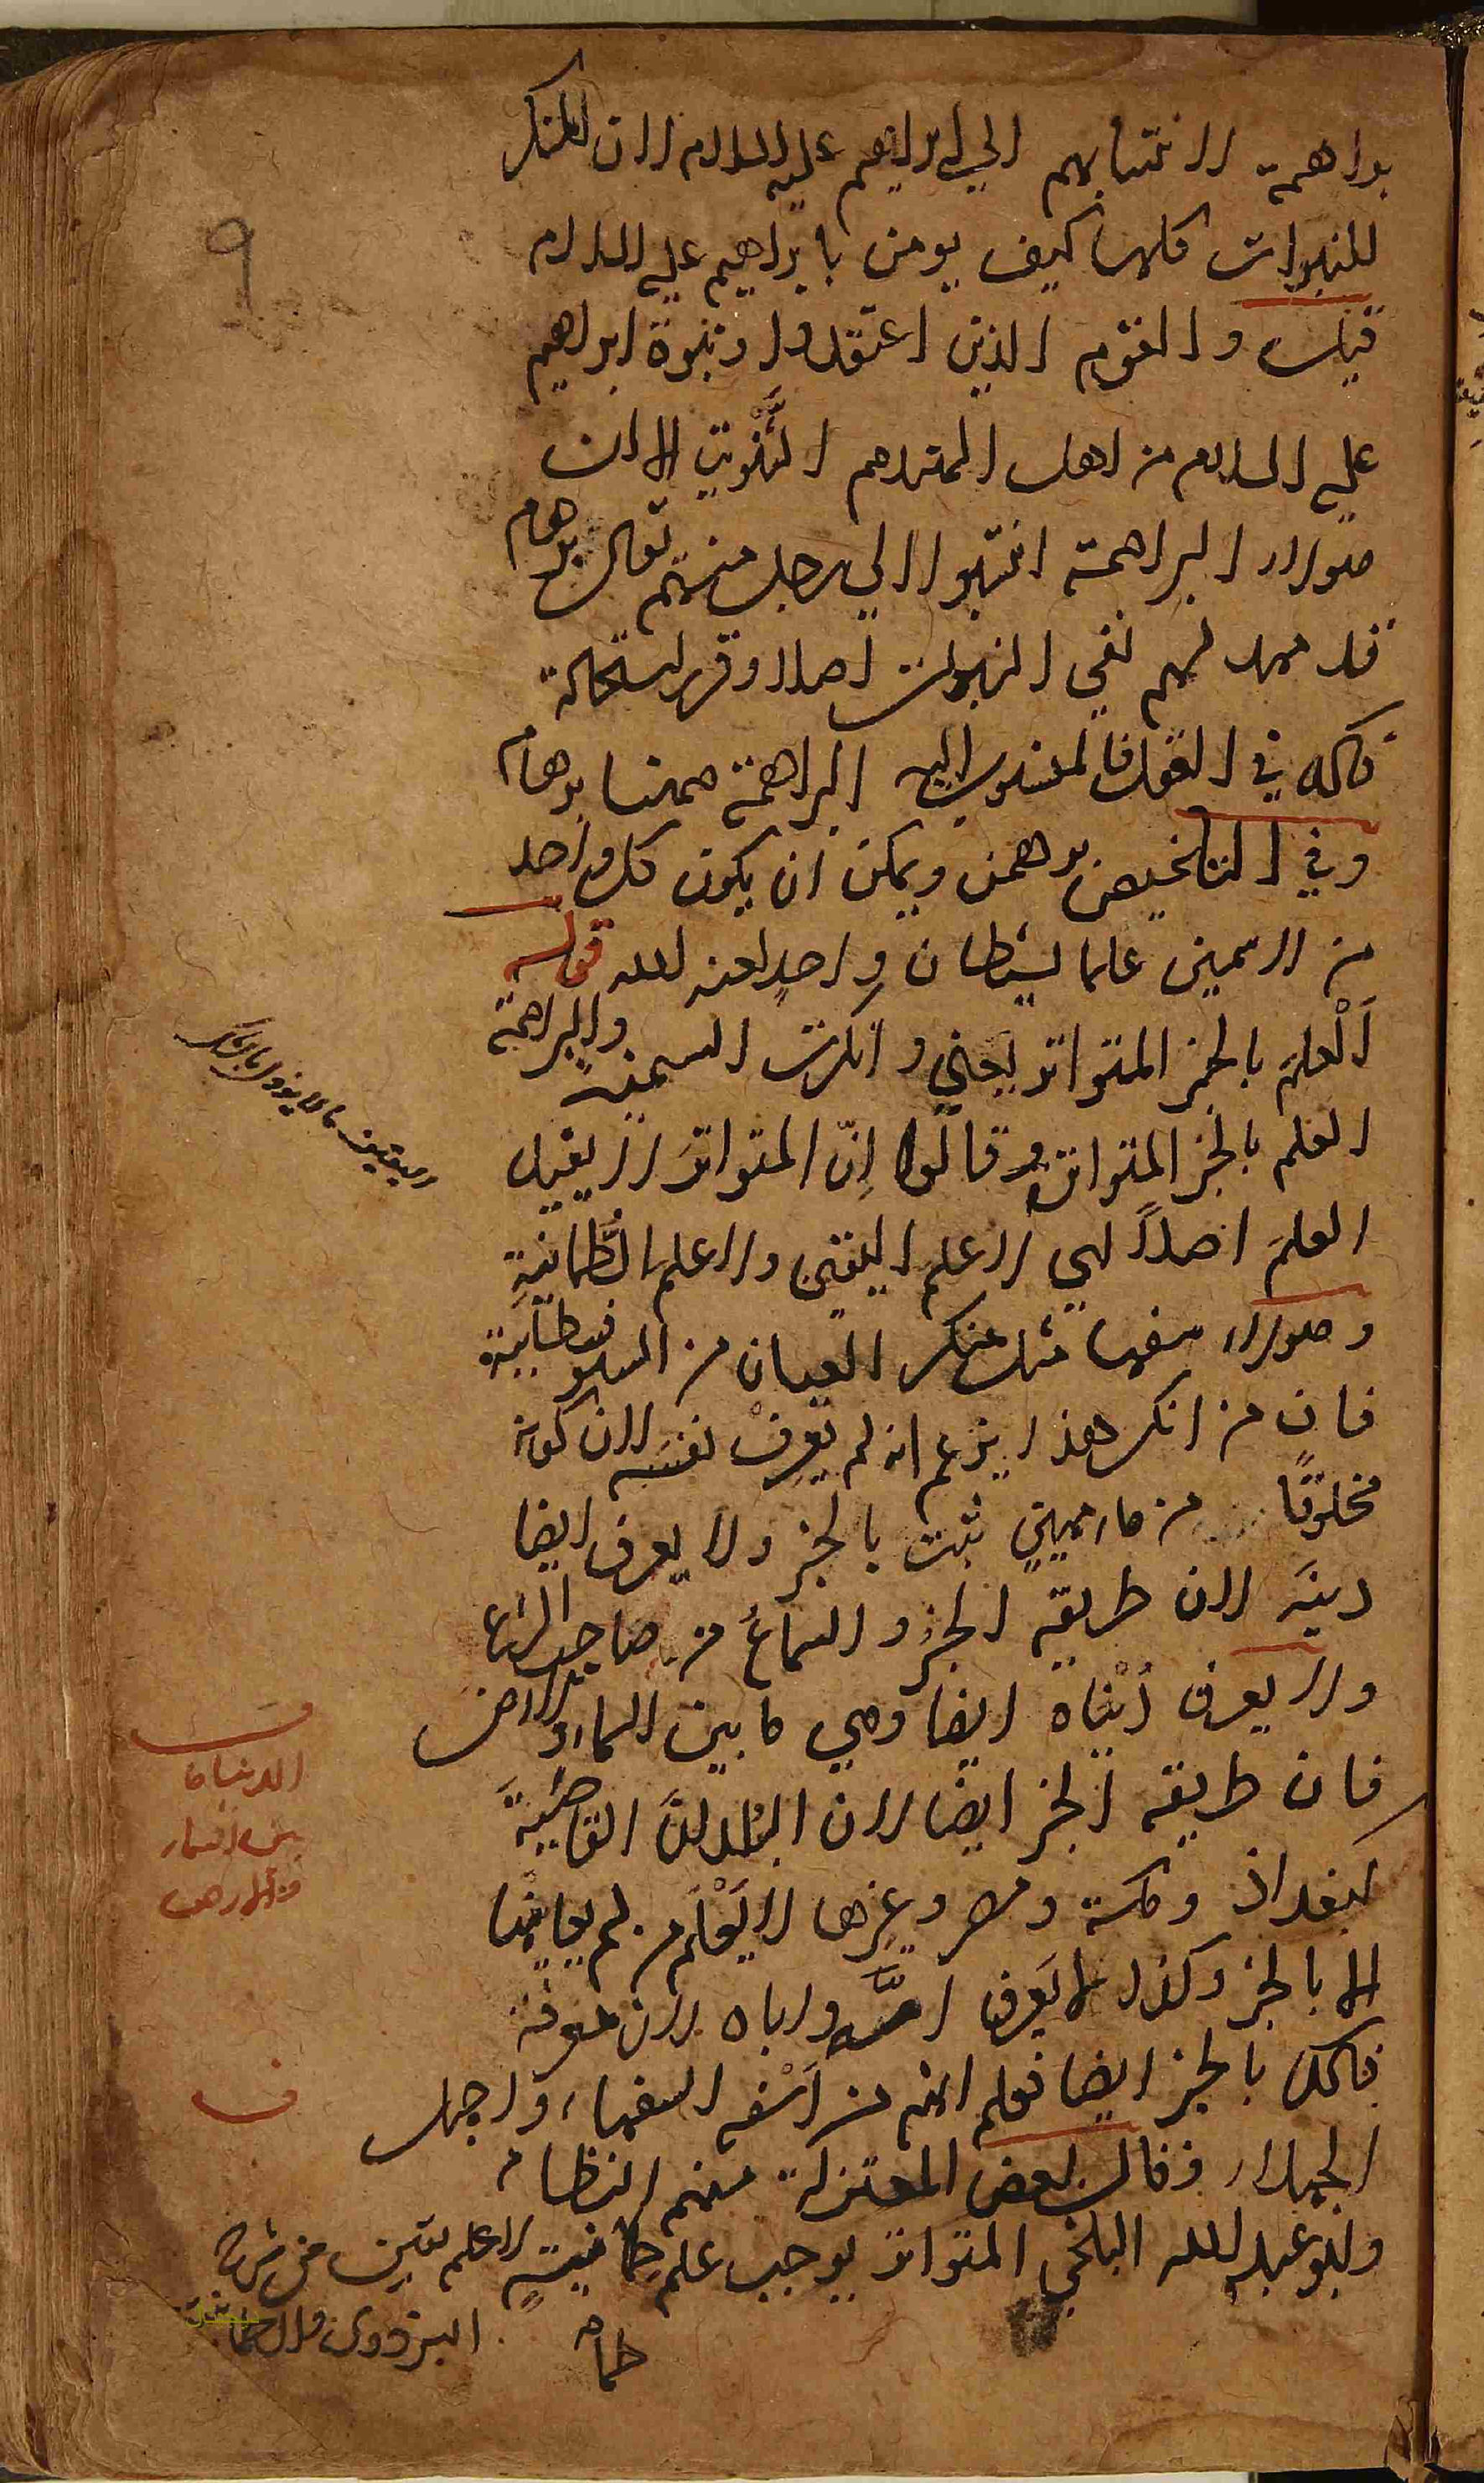 براهمة لانتسابهم الي ابراهيم عليه السلام لان المنكر
للنبوات كلها كيف يومن بابراهيم عليه السلام
قيل والقوم الذين اعتقدوا نبوة ابراهيم
عليه السلام من اهل الثنويت الا ان
هولاء البراهمة انتسبوا الي رجل منهم يقال برهام
قد مهد لهم نفي النبوات اصلا وقرر استحالة
ذلك في العقول فالمنسوب اليه البراهمة ههنا برهام
وفي التلخيص برهمن ويمكن ان يكون كل واحد
من الاسمين علما لشيطان واحد لعنه الله قوله
اَلْعلمَ بالخبر المتواتر يعني وانكرت السمنية والبراهمة
العلم بالخبر المتواتر وقالوا اِنّ المتواترَ لا يفيد
العلمَ اصلاً اي لا علمَ اليقين ولا علم الطُّمانيةِ
وهولاء سفهاء مثل منكر العيان من السوفسطائية
فان من انكر هذا يزعم انه لم يعرفْ نفسَه لان كونه
مخلوقًا من ماء مهين ثبت بالخبر ولا يعرف ايضا
دينَه لان طريقه الخبرُ والسماعُ من صاحب الشرع
ولا يعرف دُنْياه ايضا وهي ما بين السماء والارض
فان طريقه الخبر ايضا لان البلدانَ القاصيَةَ
كبغداد ومكة ومصر وغيرها لا يَعْلَم من لم يعاينها
الا بالخبر وكذا لا يَعرف امَّه واباه لان معرفة
ذلك بالخبر ايضا فعلم انه من اَسْفه السفهاء واجهل
الجهلاء وقال بعض المعتزلة منهم النظام
وابو عبد الله البلخي المتواتر يوجب علم طمانيةٍ لا علم يقين من شرح
البزدوي
الدنيا ما
بين السماء
والارض
ف
9